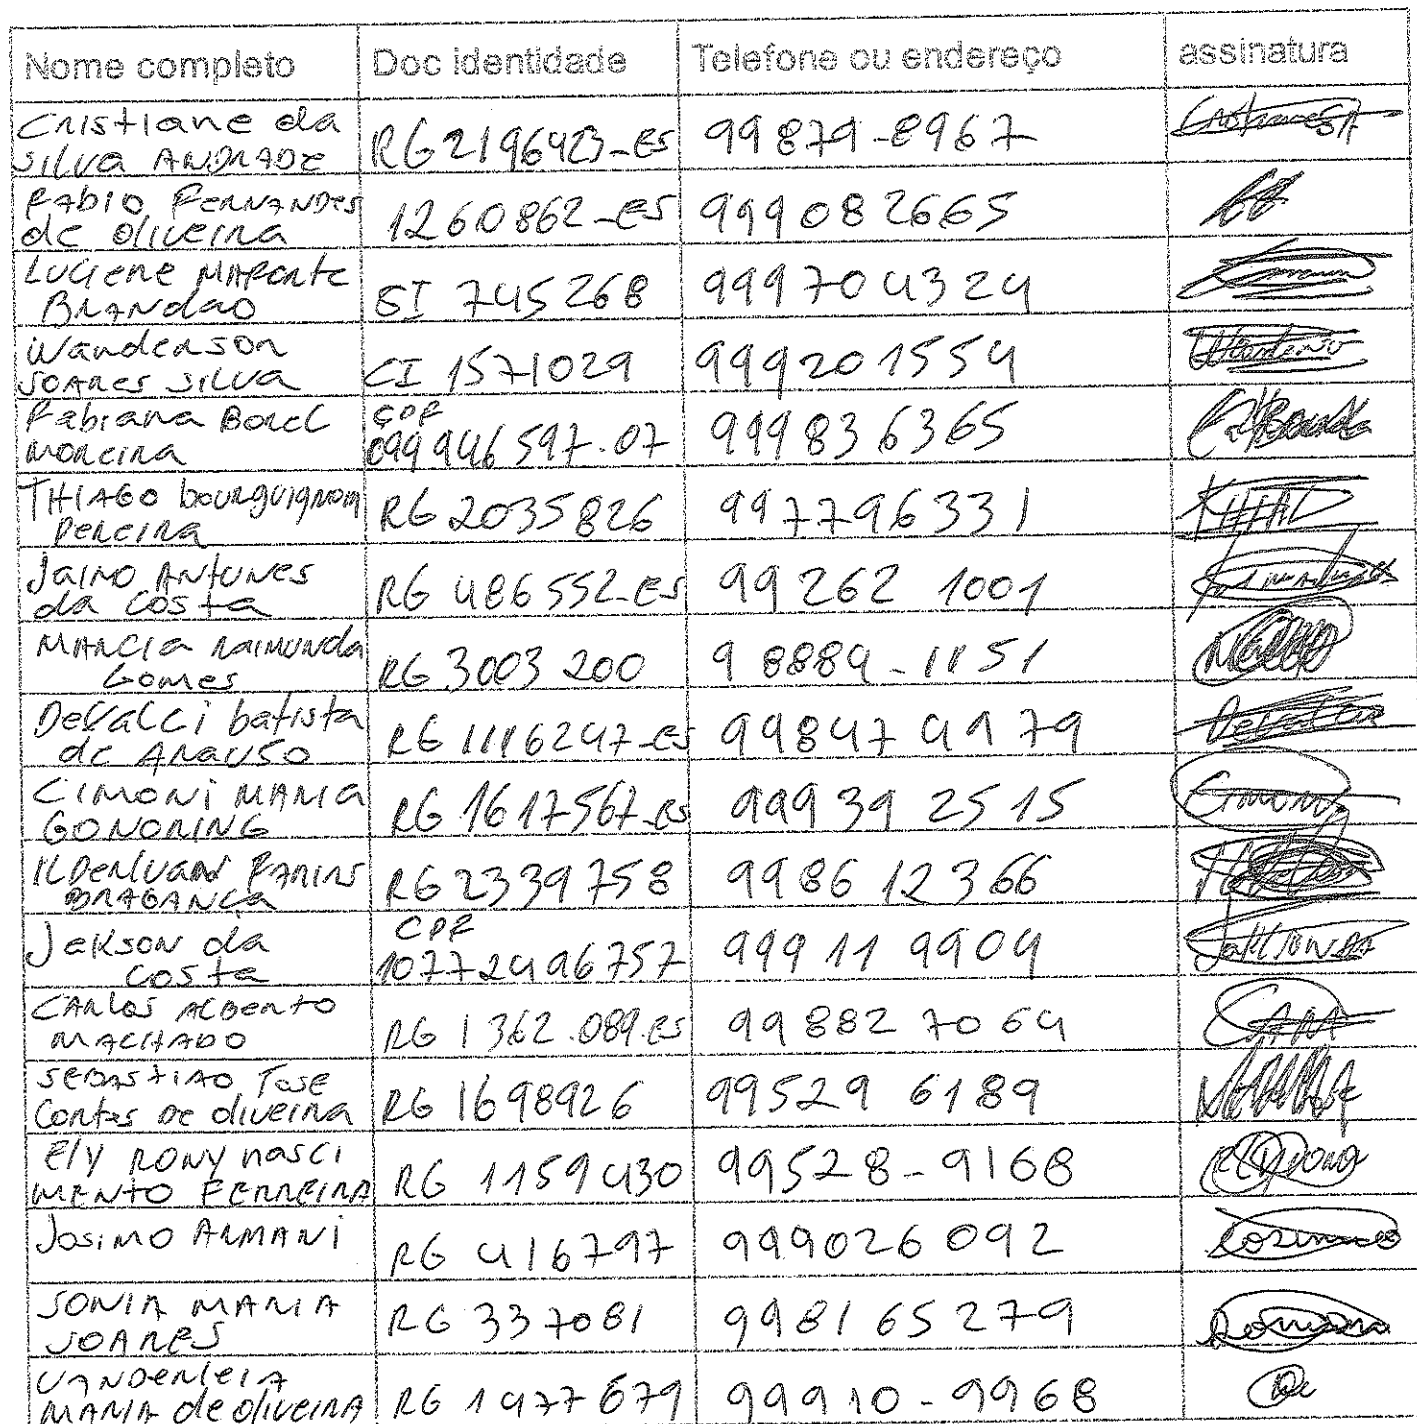 Nome completo Doc identidade Telefone ou endereço assinatura
Cristiane da
silva ANDRADE RG 2196423-ES 99879-8967
FABIO FERNANDES
de oliveira 1260862-ES 999082665
Luciene
BRANDAO 745268 999704324
Wanderson
SOARES SILVA CI 1571029 999201554
Fabiana Borel CPF
MOREIRA 099946597-07 999836365
THIAGO bourguignom
PEREIRA RG 2035826 997796331
JAIRO ANTUNES
da COSta RG 486552-ES 99262 1001
MARCIA RAIMUNDA
Gomes RG 3003 200 9 8889-1151
DeValci batista
de ARAUJO RG 1116247-ES 99847 4979
CIMONI MARIA
GONORING RG 1617567-ES 99939 2515
BRAGANCA RG 2339758 9986 12366
Jakson da CPF
COSta 99911 9909
CARLOS ALBERTO
MACHADO RG 1362.089.ES 99882 7064
SEBASTIAO JOSE
de oliveira RG 1698926 99529 6189
Ely RONY nasci
MENTO FERREIRA RG 1159430 99528-9168
JOSIMO ARMANI RG 416797 999026092
SONIA MARIA
SOARES RG 337081 998165279
VANDERLEIA
MARIA de oliveira RG 1977679 99910-9968